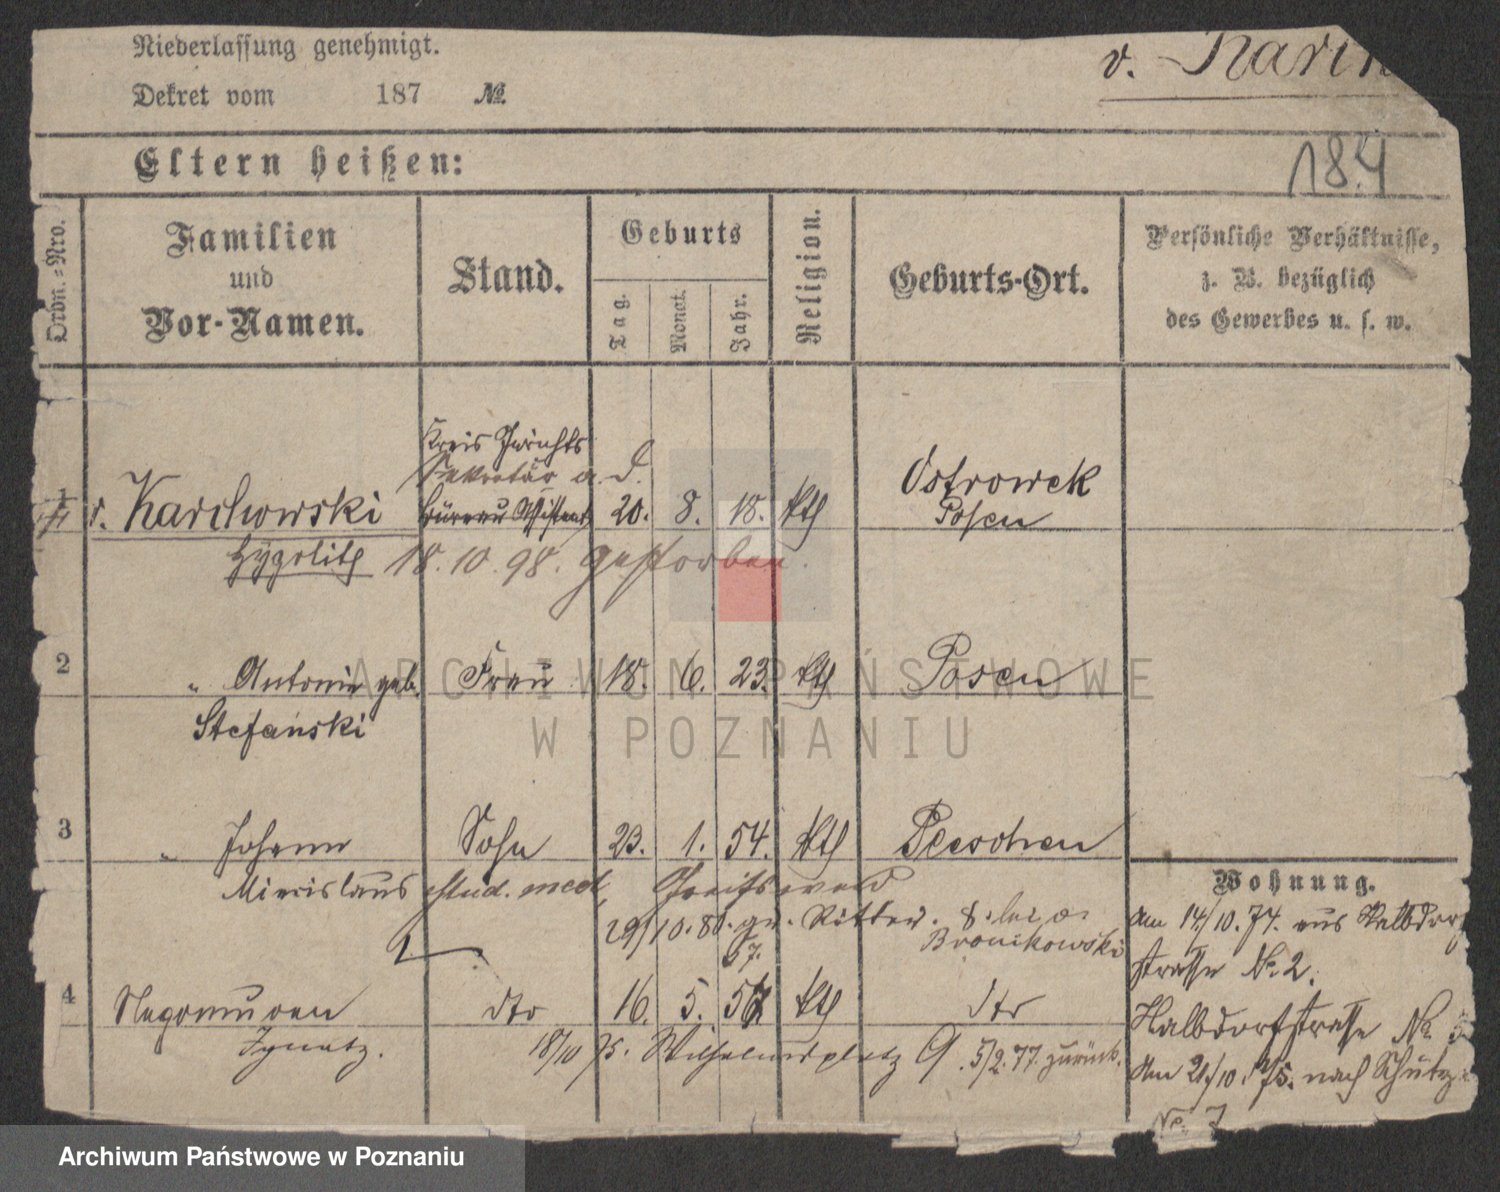 Niederlassung genehmigt.
Dekret vom 187 №
v. Karch
184
Eltern heißen:
Ordn.-Nro.
Familien
und
Vor-Namen.
Stand.
Geburts
Tag.
Monat.
Jahr.
Religion.
Geburts-Ort.
Persönliche Verhältnisse,
z. B. bezüglich
des Gewerbes u. s. w.
Kreis Gerichts
Sekretär a. D.
1 v. Karchowski Büreau Assistent 20. 8. 18. kth Ostrowek
Posen
Hypolith 18. 10. 98. gestorben.
2 " Antonie geb. Frau 18. 6. 23. kth Posen
Stefański
3 " Johann Sohn 23. 1. 54. kth Pleschen
Miecislaus stud. med. Greifswald
29/10. 80. gr. Ritter. 8. bei v.
Bronikowski
57.
4 Nepomucen dto 16. 5. 57 kth dto
Ignatz. 18/10 75. Wilhelmsplatz 9. 5/2. 77. zurück.
Wohnung.
Am 14/10. 74. aus Halbdorf
strasse No. 2.
Halbdorfstrasse No.
Am 21/10. 75. nach Schütz
No. 7
ARCHIWUM PAŃSTWOWE
W POZNANIU
Archiwum Państwowe w Poznaniu